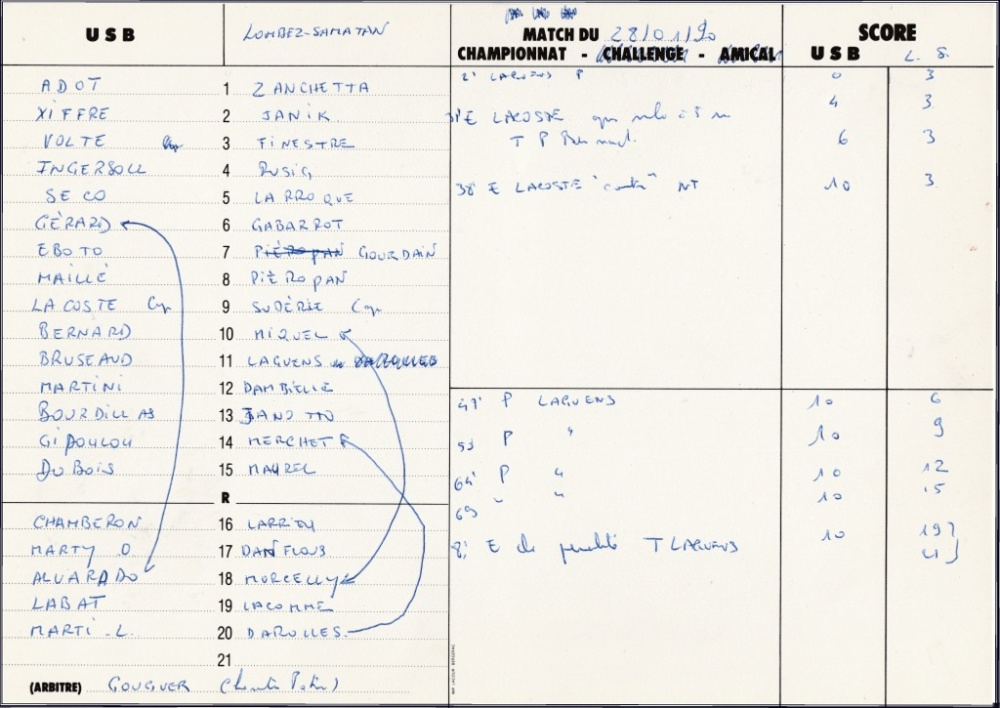 USB LOMBEZ-SAMATAN
MATCH DU 28/01/90
CHAMPIONNAT - CHALLENGE - AMICAL
SCORE
USB L. S.
ADOT 1 ZANCHETTA
XIFFRE 2 JANIK
VOLTE 3 FINESTRE
INGERSOLL 4 RUSIG
SECO 5 LARROQUE
GÉRARD 6 GABARROT
EBOTO 7 PIÉROPAN GOURDAIN
MAILLÉ 8 PIÉROPAN
LACOSTE Cap 9 SUDÉRIE Cap
BERNARD 10 MIQUEL
BRUSEAUD 11 LAGUENS
MARTINI 12 DAMBIELLE
BOURDILLAS 13 JANOTTO
GIPOULOU 14 MERCHET
DUBOIS 15 MAUREL
R
CHAMBERON 16 LARRIEU
MARTY O 17 DANFLOUS
ALVARADO 18 MORCELLY
LABAT 19 LACOMME
MARTI.L. 20 DAROLLES.
21
(ARBITRE) GOUGUER
2' LAGUENS P 0 3
E LACOSTE 4 3
T P Bernard 6 3
38' E LACOSTE "contré" NT 10 3
47' P LAGUENS 10 6
53 P " 10 9
64' P " 10 12
69 " " 10 15
E de pénalité T LAGUENS 10 19